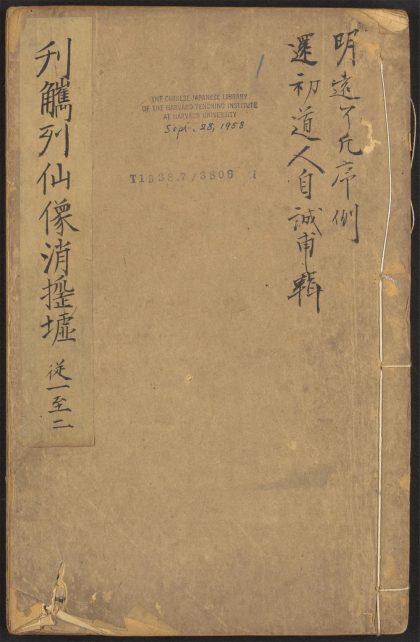 明遠了凡序例
還初道人自誠甫輯
THE CHINESE-JAPANESE LIBRARY
OF THE HARVARD-YENCHING INSTITUTE
AT HARVARD UNIVERSITY
Sept. 28, 1958
刋觹列仙像消搖墟 從一至二